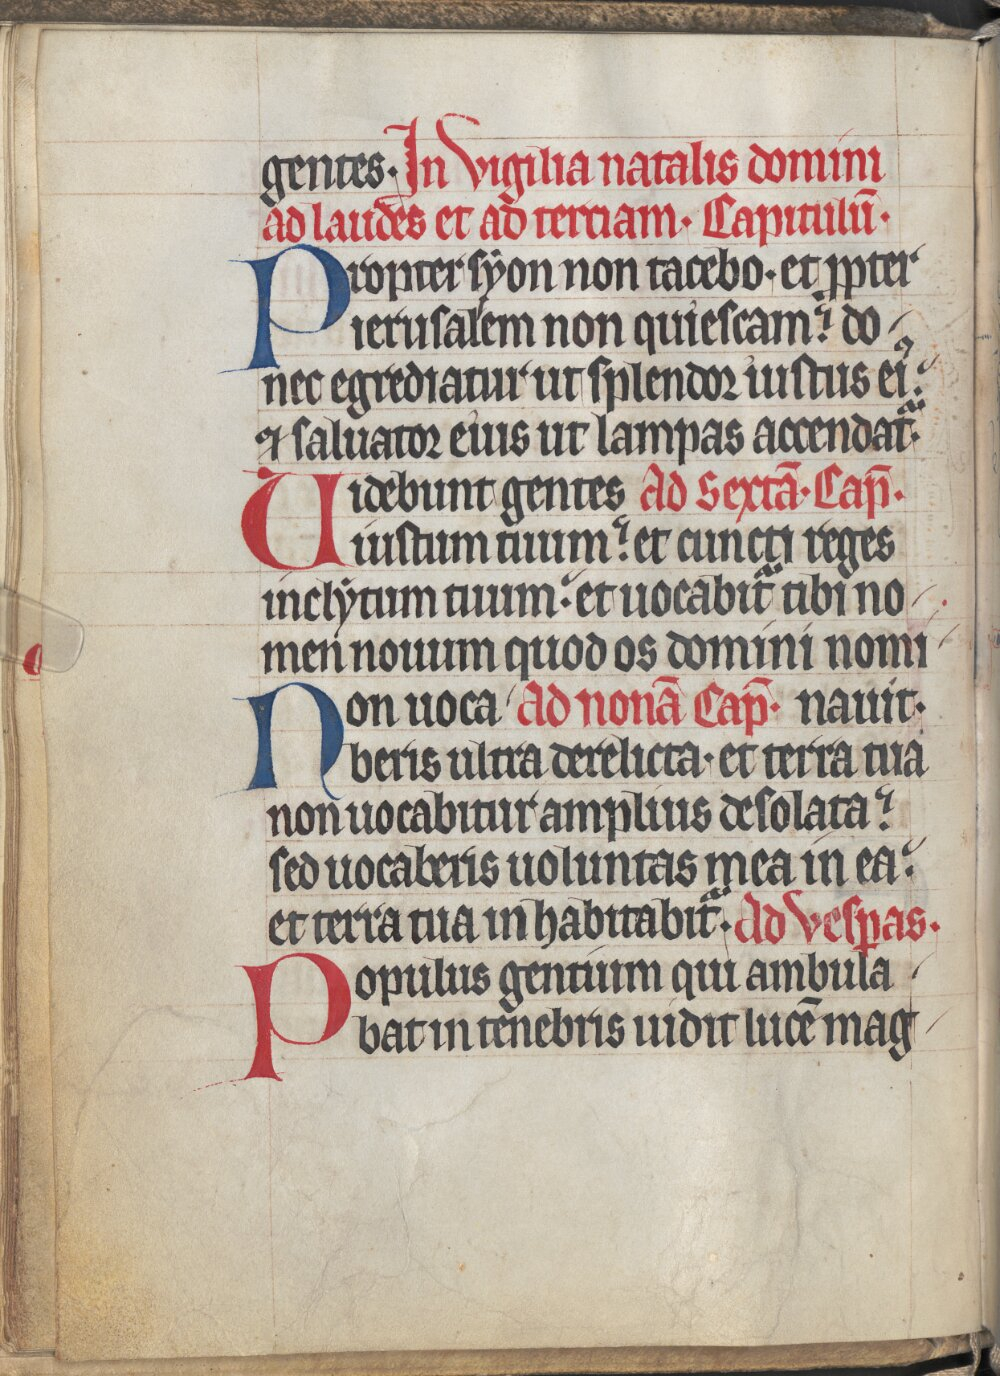 gentes. In vigilia natalis domini
ad laudes et ad terciam. Capitulū.
Propter syon non tacebo. et ꝓpter
ierusalem non quiescam? do
nec egrediatur ut splendor iustus eiꝰ.
⁊ saluator eius ut lampas accendat᷑.
Uidebunt gentes Ad sextā. Cap̄.
iustum tuum? et cuncti reges
inclytum tuum. et uocabit᷑ tibi no
men nouum quod os domini nomi
Non uoca Ad nonā Cap̄. nauit.
beris ultra derelicta. et terra tua
non uocabitur amplius desolata?
sed uocaberis uoluntas mea in ea.
et terra tua inhabitabit᷑. Ad vesꝑas.
Populus gentium qui ambula
bat in tenebris uidit lucē mag